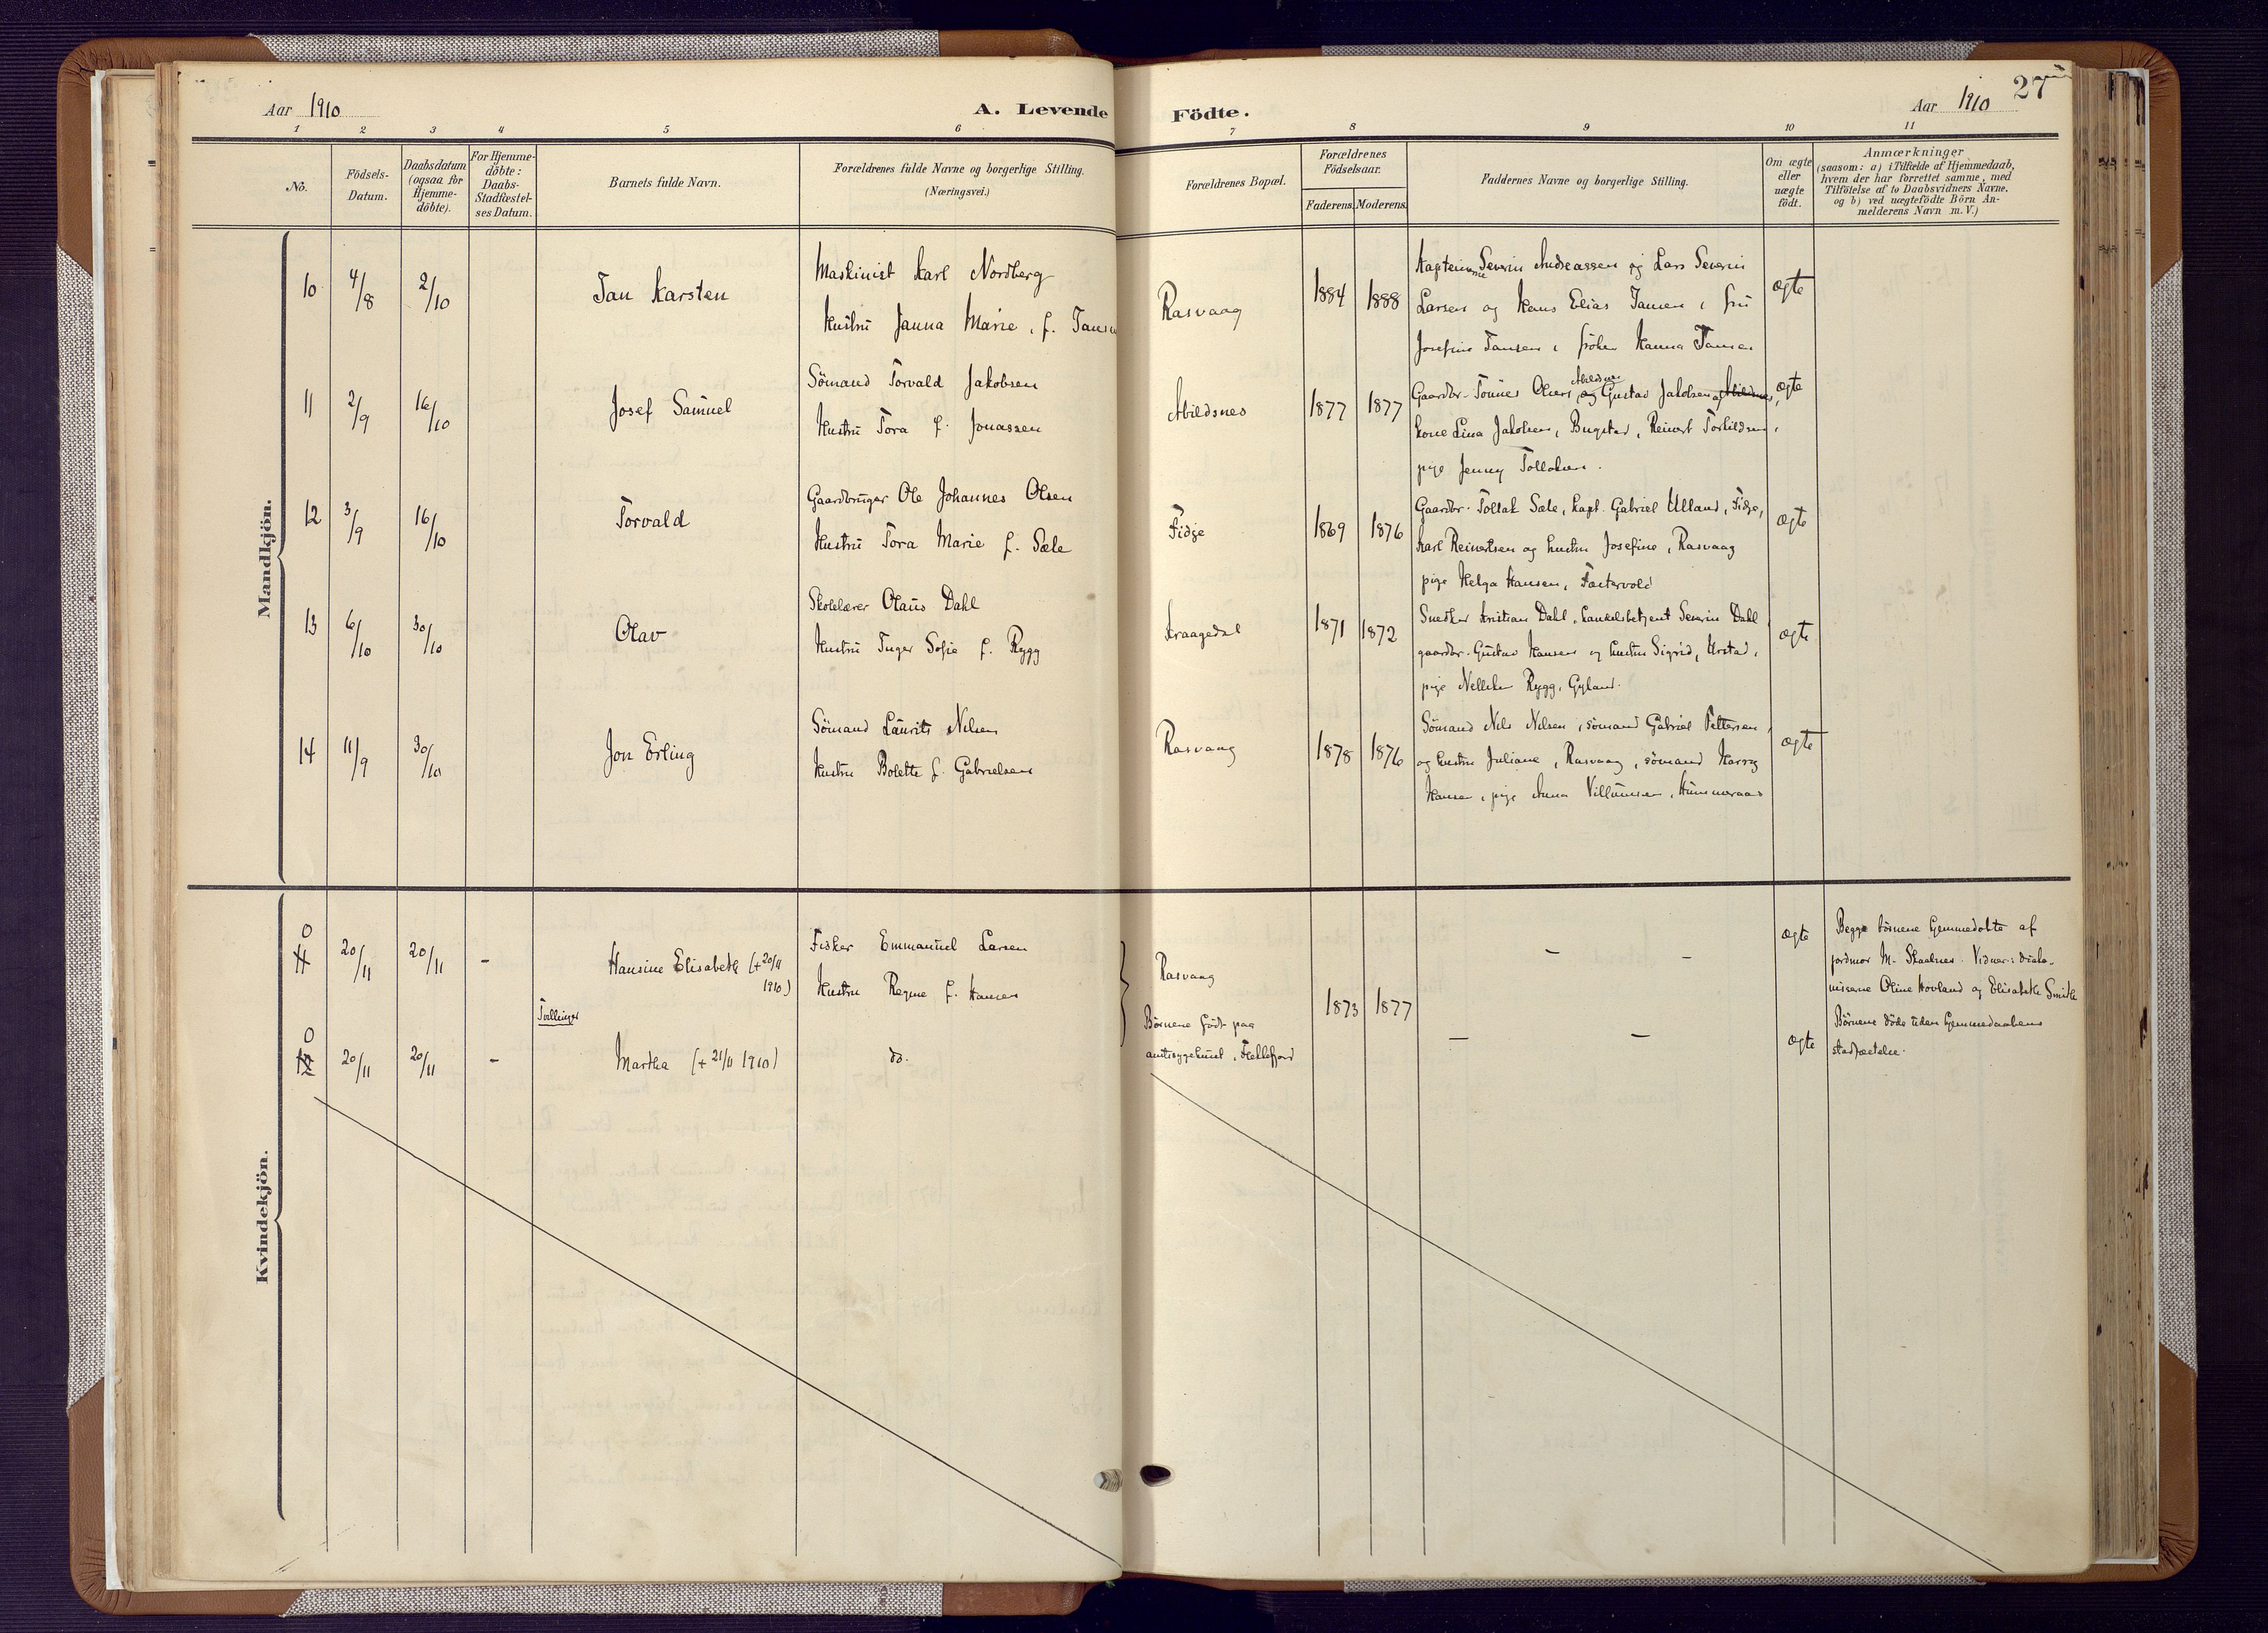 Aar 1910
A. Levende Födte.
Aar 1910
27
1 2 3 4 5 6 7 8 9 10 11
No.
Födsels-
Datum.
Daabsdatum
(ogsaa for
Hjemme-
döbte).
For Hjemme-
döbte:
Daabs-
Stadfæstel-
ses Datum.
Barnets fulde Navn.
Forældrenes fulde Navne og borgerlige Stilling.
(Næringsvei.)
Forældrenes Bopæl.
Forældrenes
Födselsaar.
Faderens. Moderens.
Faddernes Navne og borgerlige Stilling.
Om ægte
eller
uægte
födt.
Anmærkninger
(saasom: a) i Tilfælde af Hjemmedaab,
hvem der har forrettet samme, med
Tilföielse af to Daabsvidners Navne.
og b) ved uægtefödte Börn An-
melderens Navn m. V.)
Mandkjön.
10 4/8 2/10 Jan Karsten
Maskinist Karl Nordberg
Hustru Janna Marie, f. Jansen
Rasvaag
1884 1888
Kapteinerne Severin Andreassen og Lars Severin
Larsen og Hans Elias Jansen, fru
Josefine Jansen, fröken Hanna Jansen
ægte
11 2/9 16/10 Josef Samuel
Sömand Torvald Jakobsen
Hustru Tora f. Jonassen
Abildsnes
1877 1877
Gaardbr. Tönnes Olsen, Abildsnes, og Gustav Jakobsen
kone Lina Jakobsen, Bugstad, Reinert Torkildsen,
pige Jenny Tollaksen.
ægte
12 3/9 16/10 Torvald
Gaardbruger Ole Johannes Olsen
Hustru Tora Marie f. Sæle
Fidje
1869 1876
Gaardbr. Tollak Sæle, kapt. Gabriel Ulland, Fidje,
Karl Reinertsen og hustru Josefine, Rasvaag
pige Helga Hansen, Fastervold
ægte
13 6/10 30/10 Olav
Skolelærer Olaus Dahl
Hustru Inger Sofie f. Rygg
Kraagedal
1871 1872
Snedker Kristian Dahl, handelsbetjent Severin Dahl
gaardbr. Gustav Hansen og hustru Sigrid, Urstad,
pige Nelliken Rygg, Gyland.
ægte
14 11/9 30/10 Jon Erling
Sömand Laurits Nilsen
Hustru Bolette f. Gabrielsen
Rasvaag
1878 1876
Sömand Nils Nilsen, sömand Gabriel Pettersen,
og hustru Juliane, Rasvaag, sömand Harry
Hansen, pige Anna Villumsen, Hummeraas
ægte
Kvindekjön.
0
11 20/11 20/11 - Hansine Elisabeth (+ 20/11
1910)
Fisker Emmanuel Larsen
Hustru Regine f. Hansen
Rasvaag
1873 1877
- -
ægte
Begge börnene hjemmedöbte af
jordmor M. Skaalnes. Vidner: diako-
nisserne Oline Hovland og Elisabeth Smith
Tvillinger
0
12 20/11 20/11 - Martha (+ 21/11 1910)
do.
Börnene födt paa
amtssygehuset, Flekkefjord
- -
ægte
Börnene döde uden hjemmedaabens
stadfæstelse.